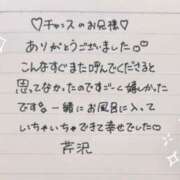 ♡チャンスのお兄様♡
ありがとうございました○°
こんなすぐまた呼んでくださると
思ってなかったのですっごく嬉しかった
ですな 一緒にお風呂に入って
いちゃいちゃできて幸せでした♡
芹沢